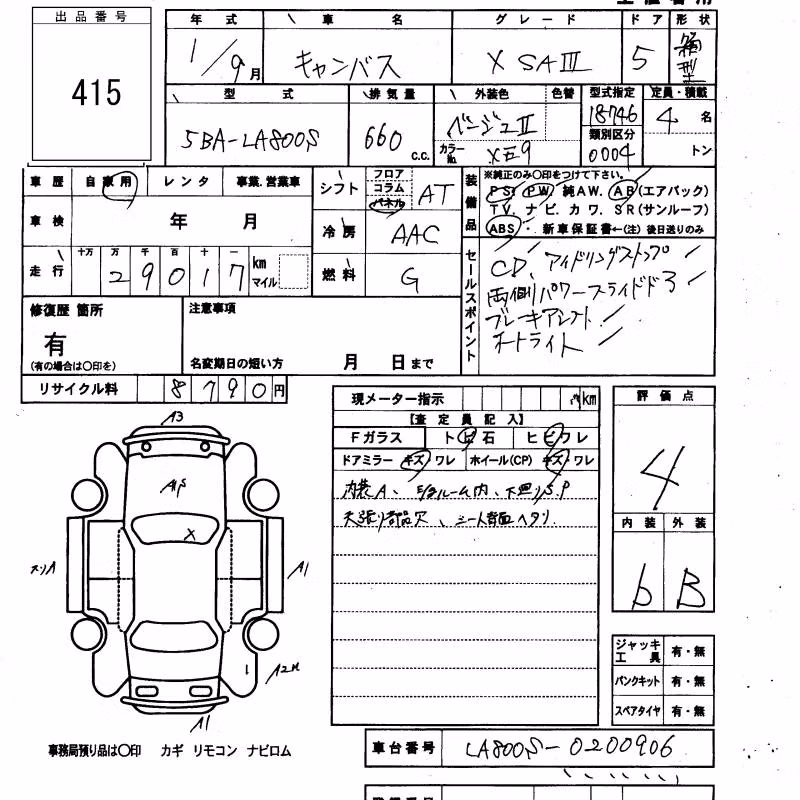 出品番号
415
年式 車名 グレード ドア 形状
1/9月 キャンバス X SAIII 5 箱型
型式 排気量 外装色 色替 型式指定 定員・積載
5BA-LA800S 660 c.c. ベージュII 18746 4名
カラーNo. 類別区分 0004 トン
車歴 自家用 レンタ 事業.営業車
シフト フロア コラム パネル AT
車検 年 月
冷房 AAC
走行 十万 万 千 百 十 一
29017 km マイル
燃料 G
装備品 ※純正のみ〇印をつけて下さい。
PS. PW. 純AW. AB(エアバック)
TV. ナビ. カワ. SR(サンルーフ)
ABS ・ 新車保証書←(注) 後日送りのみ
セールスポイント
CD、アイドリングストップ
両側パワースライドドア
ブレーキアシスト
オートライト
修復歴 箇所
有
(有の場合は〇印を)
注意事項
名変期日の短い方 月 日まで
リサイクル料 8790円
現メーター指示 km
【査定員記入】
Fガラス トビ石 ヒビワレ
ドアミラー キズ・ワレ ホイール(CP) キズ・ワレ
内装A、 ルーム内、下廻りS.P
天張り部品欠、シート背面ヘタリ
評価点
4
内装 外装
b B
A3
A1
A1
A1
ジャッキ工具 有・無
パンクキット 有・無
スペアタイヤ 有・無
事務局預り品は〇印 カギ リモコン ナビロム
車台番号 LA800S-0200906